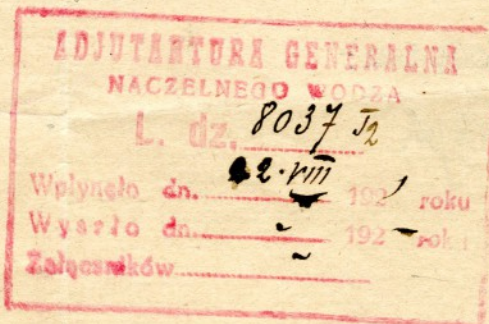 ADJUTANTURA GENERALNA
NACZELNEGO WODZA
L. dz. 8037
Wpłynęło dn. 2.VIII 192 roku
Wyszło dn. - 192 - roku
Załączników